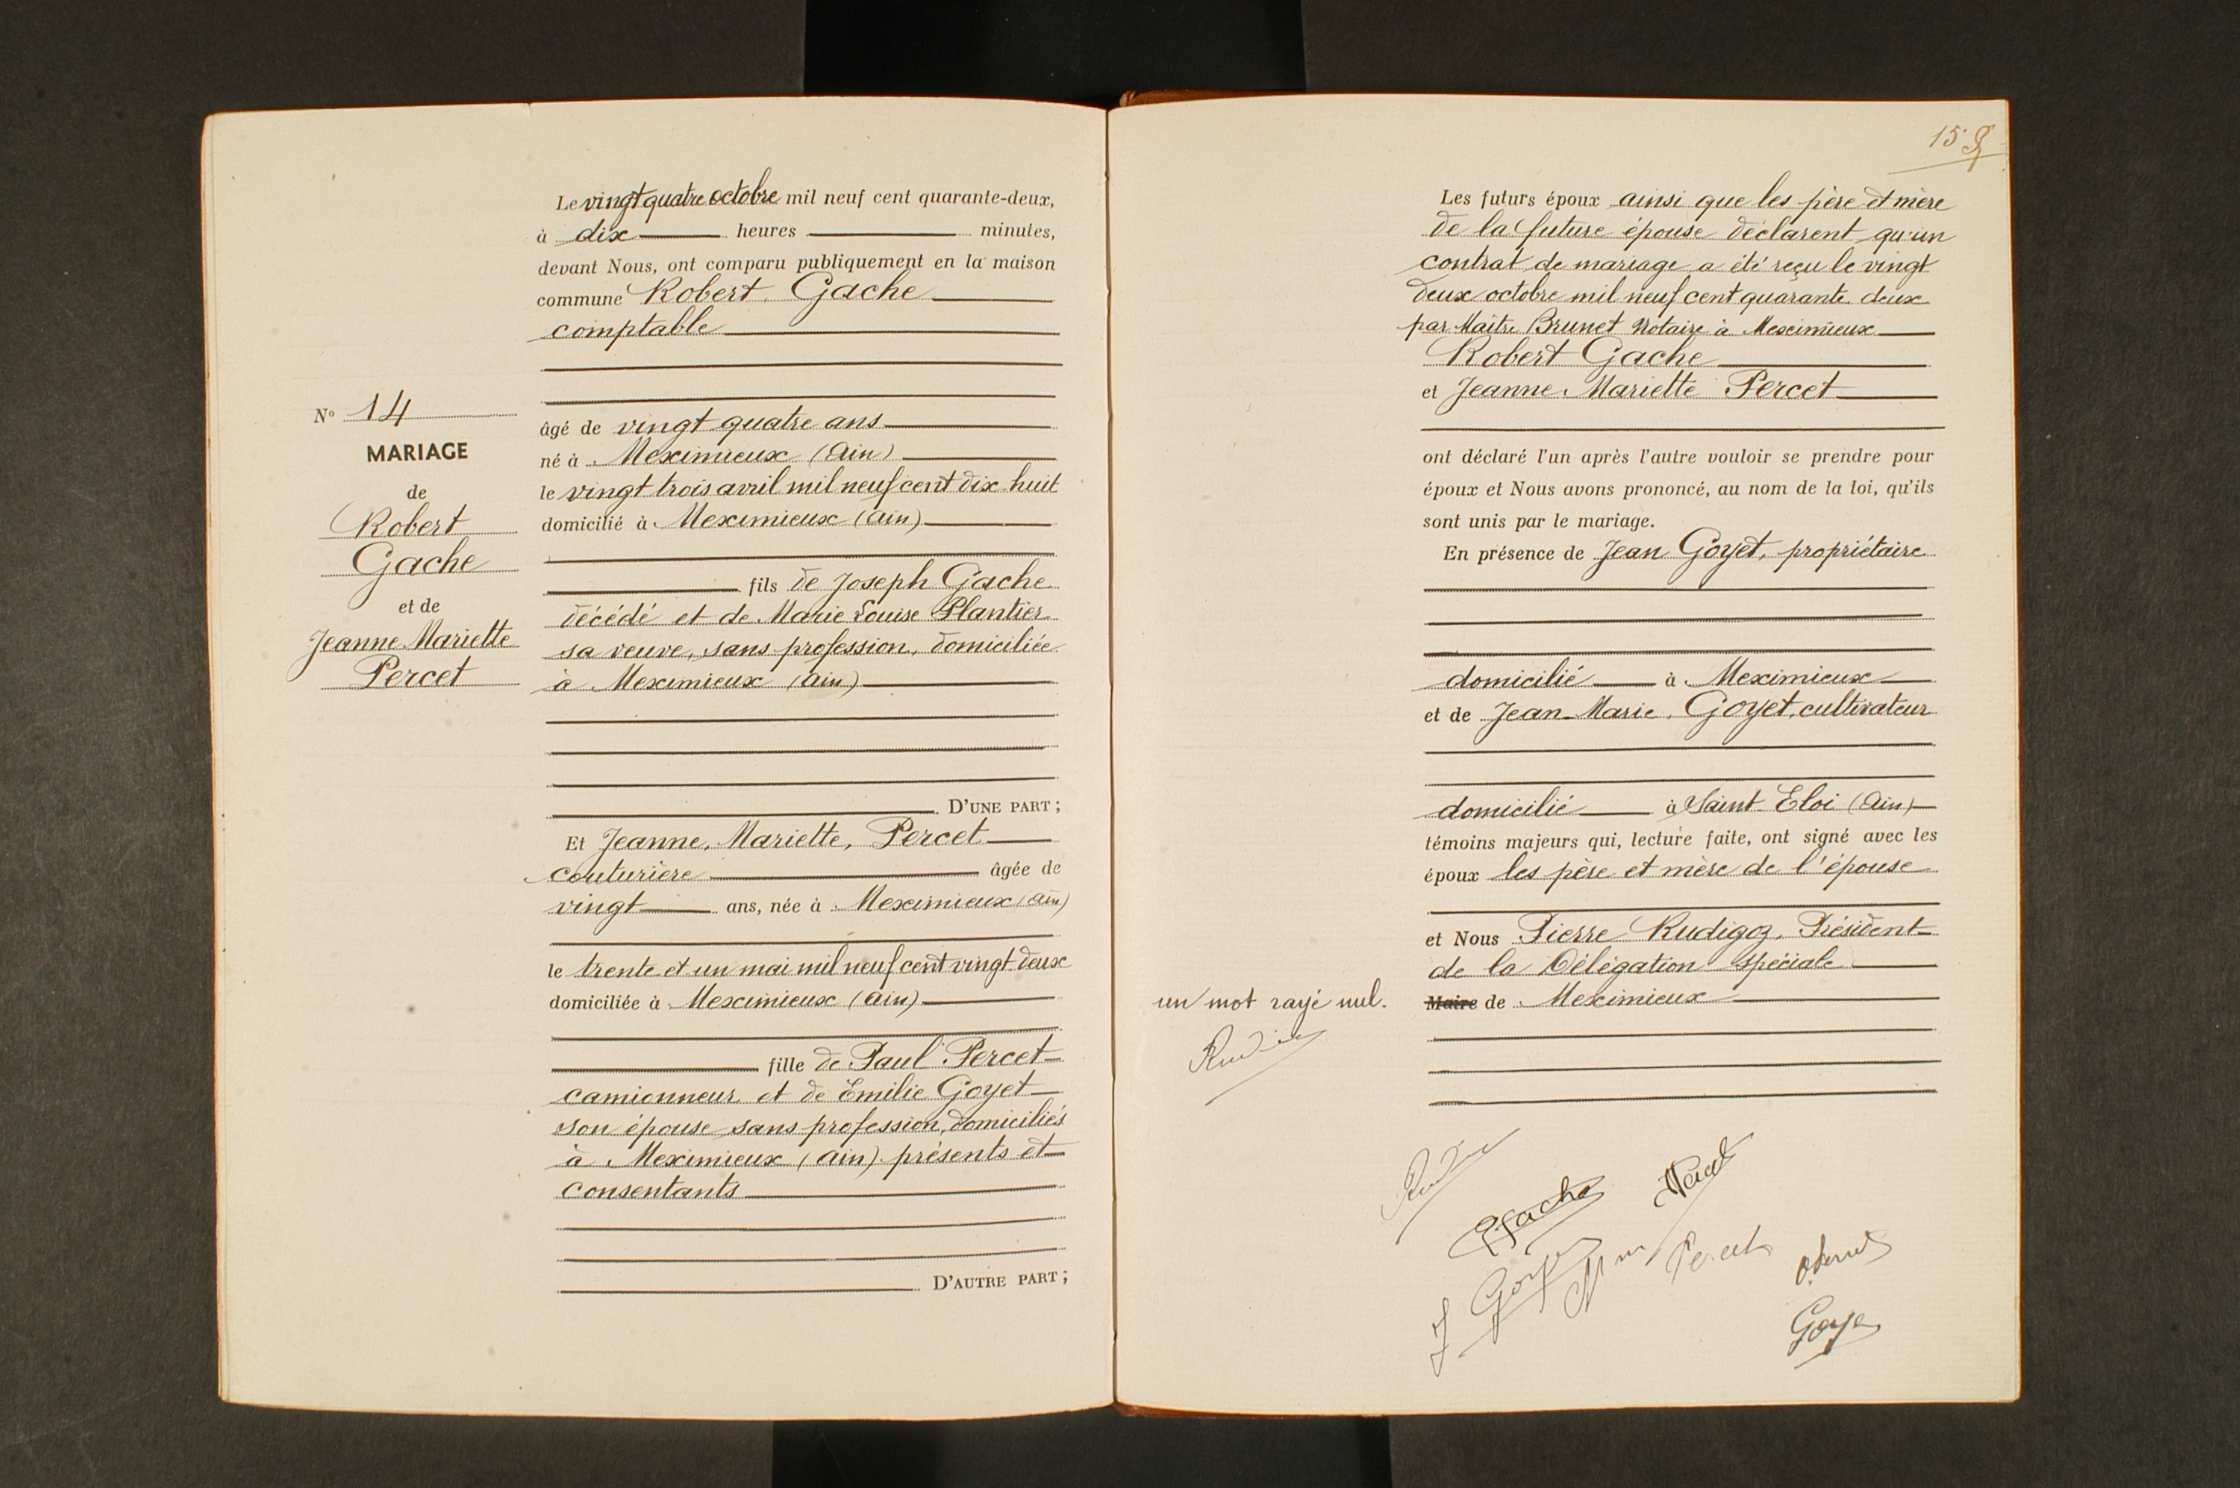 Le vingt quatre octobre mil neuf cent quarante-deux,
à dix heures minutes,
devant Nous, ont comparu publiquement en la maison
commune Robert Gache
comptable
N° 14
MARIAGE
de
Robert
Gache
et de
Jeanne Mariette
Percet
âgé de vingt quatre ans
né à Meximieux (Ain)
le vingt trois avril mil neuf cent dix huit
domicilié à Meximieux (Ain)
fils de Joseph Gache
décédé et de Marie Louise Plantier
sa veuve, sans profession, domiciliée
à Meximieux (Ain)
D'UNE PART ;
Et Jeanne, Mariette, Percet
couturière âgée de
vingt ans, née à Meximieux (Ain)
le trente et un mai mil neuf cent vingt deux
domiciliée à Meximieux (Ain)
fille de Paul Percet
camionneur et de Emilie Goyet
son épouse sans profession, domiciliés
à Meximieux (Ain) présents et
consentants
D'AUTRE PART ;
15
Les futurs époux ainsi que les père et mère
de la future épouse déclarent qu'un
contrat de mariage a été reçu le vingt
deux octobre mil neuf cent quarante deux
par Maître Brunet notaire à Meximieux
Robert Gache
et Jeanne Mariette Percet
ont déclaré l'un après l'autre vouloir se prendre pour
époux et Nous avons prononcé, au nom de la loi, qu'ils
sont unis par le mariage.
En présence de Jean Goyet, propriétaire
domicilié à Meximieux
et de Jean-Marie, Goyet, cultivateur
domicilié à Saint Eloi (Ain)
témoins majeurs qui, lecture faite, ont signé avec les
époux les père et mère de l'épouse
et Nous Pierre Rudigoz, Président
de la Délégation spéciale
Maire de Meximieux
un mot rayé nul.
Gache
J Goyet
Percet
Goyet